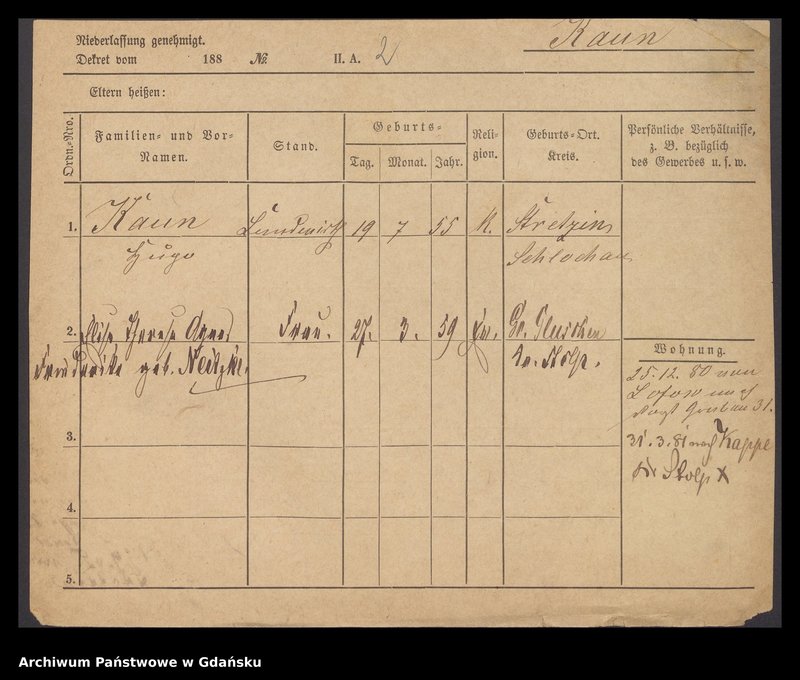 Kaun
Niederlassung genehmigt.
Dekret vom 188 No. II. A. 2
Eltern heißen:
Ordn.-Nro.
Familien- und Vor-
Namen.
Stand.
Geburts-
Tag. Monat. Jahr.
Reli-
gion.
Geburts-Ort.
Kreis.
Persönliche Verhältnisse,
z. B. bezüglich
des Gewerbes u. s. w.
1. Kaun 19 7 55 K. Stretzin
Hugo Schlochau
2. Elise Therese Agnes Frau. 27. 3. 59 Ev. Gr.
Friederike geb. Neitzke. Kr. Stolp.
Wohnung.
25.12.80 von
31.
3.
31.3.81 nach Kappe
Kr. Stolp X
4.
5.
Archiwum Państwowe w Gdańsku